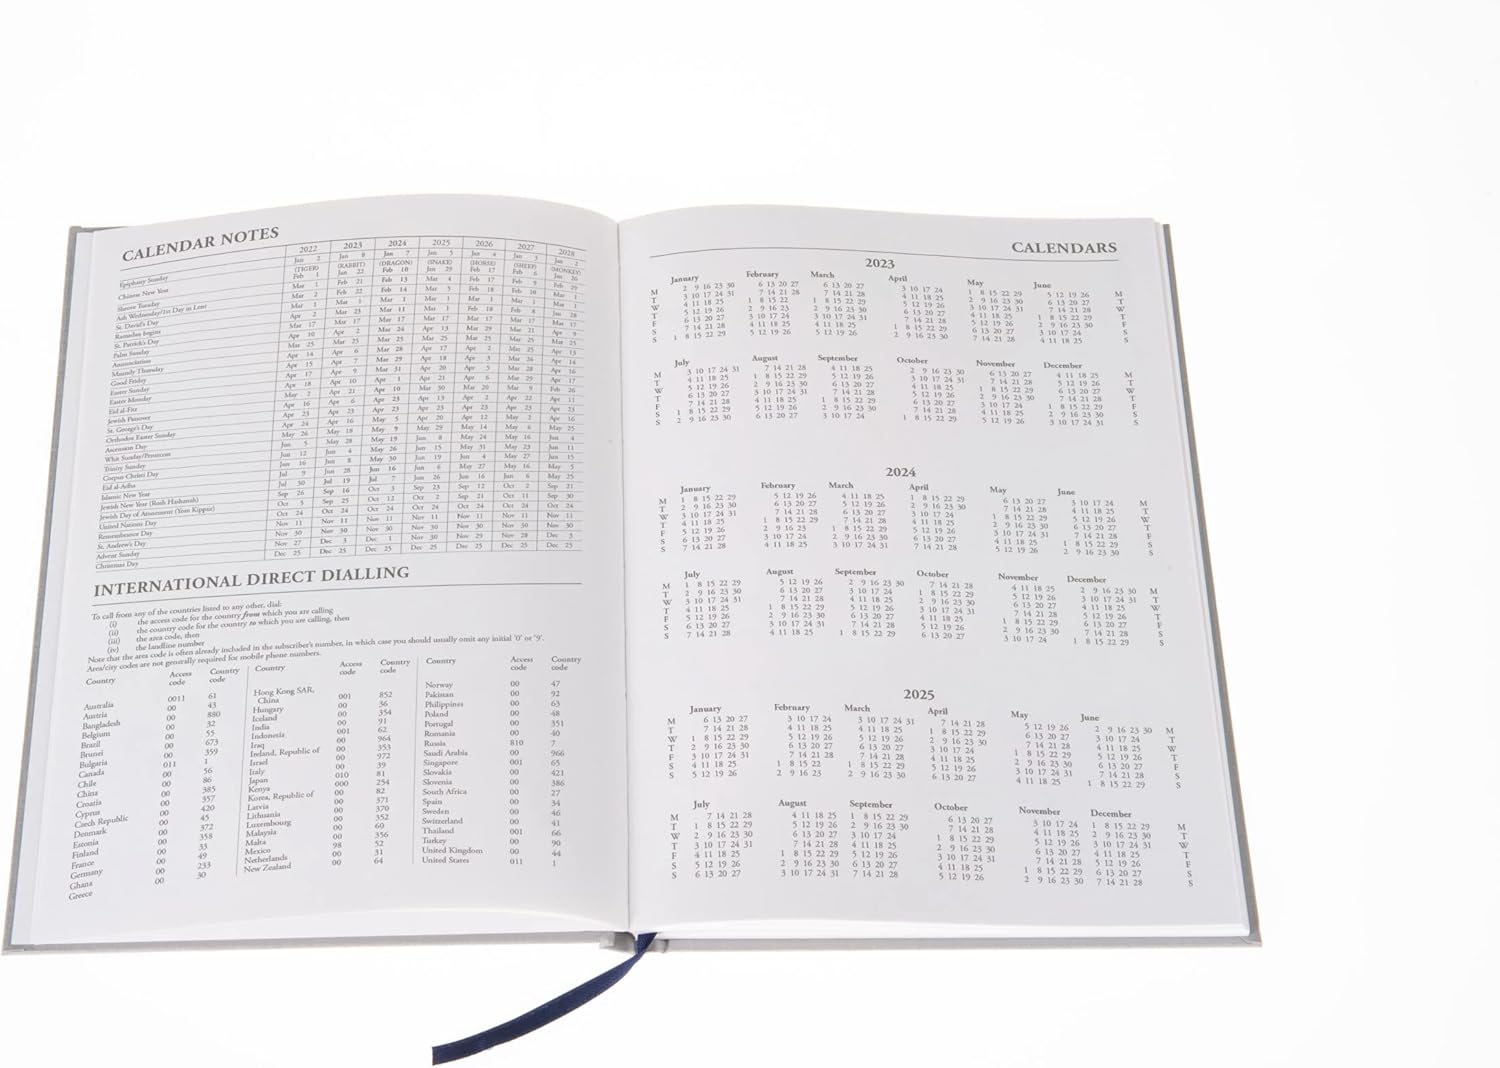 CALENDAR NOTES
2022 2023 2024 2025 2026 2027 2028
Epiphany Sunday Jan 2 Jan 8 Jan 7 Jan 5 Jan 4 Jan 3 Jan 2
(TIGER) (RABBIT) (DRAGON) (SNAKE) (HORSE) (SHEEP) (MONKEY)
Chinese New Year Feb 1 Jan 22 Feb 10 Jan 29 Feb 17 Feb 6 Jan 26
Shrove Tuesday Mar 1 Feb 21 Feb 13 Mar 4 Feb 17 Feb 9 Feb 29
Ash Wednesday/1st Day in Lent Mar 2 Feb 22 Feb 14 Mar 5 Feb 18 Feb 10 Mar 1
St. David's Day Mar 1 Mar 1 Mar 1 Mar 1 Mar 1 Mar 1 Mar 1
Ramadan begins Apr 2 Mar 23 Mar 11 Mar 1 Feb 18 Feb 8 Jan 28
St. Patrick's Day Mar 17 Mar 17 Mar 17 Mar 17 Mar 17 Mar 17 Mar 17
Palm Sunday Apr 10 Apr 2 Mar 24 Apr 13 Mar 29 Mar 21 Apr 9
Annunciation Mar 25 Mar 25 Mar 25 Mar 25 Mar 25 Mar 25 Mar 25
Maundy Thursday Apr 14 Apr 6 Mar 28 Apr 17 Apr 2 Mar 25 Apr 13
Good Friday Apr 15 Apr 7 Mar 29 Apr 18 Apr 3 Mar 26 Apr 14
Easter Sunday Apr 17 Apr 9 Mar 31 Apr 20 Apr 5 Mar 28 Apr 16
Easter Monday Apr 18 Apr 10 Apr 1 Apr 21 Apr 6 Mar 29 Apr 17
Eid al-Fitr May 2 Apr 21 Apr 10 Mar 30 Mar 20 Mar 9 Feb 26
Jewish Passover Apr 16 Apr 6 Apr 23 Apr 13 Apr 2 Apr 22 Apr 11
St. George's Day Apr 23 Apr 23 Apr 23 Apr 23 Apr 23 Apr 23 Apr 23
Orthodox Easter Sunday Apr 24 Apr 16 May 5 Apr 20 Apr 12 May 2 Apr 16
Ascension Day May 26 May 18 May 9 May 29 May 14 May 6 May 25
Whit Sunday/Pentecost Jun 5 May 28 May 19 Jun 8 May 24 May 16 Jun 4
Trinity Sunday Jun 12 Jun 4 May 26 Jun 15 May 31 May 23 Jun 11
Corpus Christi Day Jun 16 Jun 8 May 30 Jun 19 Jun 4 May 27 Jun 15
Eid al-Adha Jul 9 Jun 28 Jun 16 Jun 6 May 27 May 16 May 5
Islamic New Year Jul 30 Jul 19 Jul 7 Jun 26 Jun 16 Jun 6 May 25
Jewish New Year (Rosh Hashanah) Sep 26 Sep 16 Oct 3 Sep 23 Sep 12 Oct 2 Sep 21
Jewish Day of Atonement (Yom Kippur) Oct 5 Sep 25 Oct 12 Oct 2 Sep 21 Oct 11 Sep 30
United Nations Day Oct 24 Oct 24 Oct 24 Oct 24 Oct 24 Oct 24 Oct 24
Remembrance Day Nov 11 Nov 11 Nov 11 Nov 11 Nov 11 Nov 11 Nov 11
St. Andrew's Day Nov 30 Nov 30 Nov 30 Nov 30 Nov 30 Nov 30 Nov 30
Advent Sunday Nov 27 Dec 3 Dec 1 Nov 30 Nov 29 Nov 28 Dec 3
Christmas Day Dec 25 Dec 25 Dec 25 Dec 25 Dec 25 Dec 25 Dec 25
INTERNATIONAL DIRECT DIALLING
To call from any of the countries listed to any other, dial:
(i) the access code for the country from which you are calling
(ii) the country code for the country to which you are calling, then
(iii) the area code, then
(iv) the landline number
Note that the area code is often already included in the subscriber's number, in which case you should usually omit any initial '0' or '9'.
Area/city codes are not generally required for mobile phone numbers.
Country Access code Country code
Australia 0011 61
Austria 00 43
Bangladesh 00 880
Belgium 00 32
Brazil 00 55
Brunei 00 673
Bulgaria 00 359
Canada 011 1
Chile 00 56
China 00 86
Croatia 00 385
Cyprus 00 357
Czech Republic 00 420
Denmark 00 45
Estonia 00 372
Finland 00 358
France 00 33
Germany 00 49
Ghana 00 233
Greece 00 30
Country Access code Country code
Hong Kong SAR, China 001 852
Hungary 00 36
Iceland 00 354
India 00 91
Indonesia 001 62
Iraq 00 964
Ireland, Republic of 00 353
Israel 00 972
Italy 00 39
Japan 010 81
Kenya 000 254
Korea, Republic of 00 82
Latvia 00 371
Lithuania 00 370
Luxembourg 00 352
Malaysia 00 60
Malta 00 356
Mexico 98 52
Netherlands 00 31
New Zealand 00 64
Country Access code Country code
Norway 00 47
Pakistan 00 92
Philippines 00 63
Poland 00 48
Portugal 00 351
Romania 00 40
Russia 810 7
Saudi Arabia 00 966
Singapore 001 65
Slovakia 00 421
Slovenia 00 386
South Africa 00 27
Spain 00 34
Sweden 00 46
Switzerland 00 41
Thailand 001 66
Turkey 00 90
United Kingdom 00 44
United States 011 1
CALENDARS
2023
January February March April May June
M 2 9 16 23 30 6 13 20 27 6 13 20 27 3 10 17 24 1 8 15 22 29 5 12 19 26 M
T 3 10 17 24 31 7 14 21 28 7 14 21 28 4 11 18 25 2 9 16 23 30 6 13 20 27 T
W 4 11 18 25 1 8 15 22 1 8 15 22 29 5 12 19 26 3 10 17 24 31 7 14 21 28 W
T 5 12 19 26 2 9 16 23 2 9 16 23 30 6 13 20 27 4 11 18 25 1 8 15 22 29 T
F 6 13 20 27 3 10 17 24 3 10 17 24 31 7 14 21 28 5 12 19 26 2 9 16 23 30 F
S 7 14 21 28 4 11 18 25 4 11 18 25 1 8 15 22 29 6 13 20 27 3 10 17 24 S
S 1 8 15 22 29 5 12 19 26 5 12 19 26 2 9 16 23 30 7 14 21 28 4 11 18 25 S
July August September October November December
M 3 10 17 24 31 7 14 21 28 4 11 18 25 2 9 16 23 30 6 13 20 27 4 11 18 25 M
T 4 11 18 25 1 8 15 22 29 5 12 19 26 3 10 17 24 31 7 14 21 28 5 12 19 26 T
W 5 12 19 26 2 9 16 23 30 6 13 20 27 4 11 18 25 1 8 15 22 29 6 13 20 27 W
T 6 13 20 27 3 10 17 24 31 7 14 21 28 5 12 19 26 2 9 16 23 30 7 14 21 28 T
F 7 14 21 28 4 11 18 25 1 8 15 22 29 6 13 20 27 3 10 17 24 1 8 15 22 29 F
S 1 8 15 22 29 5 12 19 26 2 9 16 23 30 7 14 21 28 4 11 18 25 2 9 16 23 30 S
S 2 9 16 23 30 6 13 20 27 3 10 17 24 1 8 15 22 29 5 12 19 26 3 10 17 24 31 S
2024
January February March April May June
M 1 8 15 22 29 5 12 19 26 4 11 18 25 1 8 15 22 29 6 13 20 27 3 10 17 24 M
T 2 9 16 23 30 6 13 20 27 5 12 19 26 2 9 16 23 30 7 14 21 28 4 11 18 25 T
W 3 10 17 24 31 7 14 21 28 6 13 20 27 3 10 17 24 1 8 15 22 29 5 12 19 26 W
T 4 11 18 25 1 8 15 22 29 7 14 21 28 4 11 18 25 2 9 16 23 30 6 13 20 27 T
F 5 12 19 26 2 9 16 23 1 8 15 22 29 5 12 19 26 3 10 17 24 31 7 14 21 28 F
S 6 13 20 27 3 10 17 24 2 9 16 23 30 6 13 20 27 4 11 18 25 1 8 15 22 29 S
S 7 14 21 28 4 11 18 25 3 10 17 24 31 7 14 21 28 5 12 19 26 2 9 16 23 30 S
July August September October November December
M 1 8 15 22 29 5 12 19 26 2 9 16 23 30 7 14 21 28 4 11 18 25 2 9 16 23 30 M
T 2 9 16 23 30 6 13 20 27 3 10 17 24 1 8 15 22 29 5 12 19 26 3 10 17 24 31 T
W 3 10 17 24 31 7 14 21 28 4 11 18 25 2 9 16 23 30 6 13 20 27 4 11 18 25 W
T 4 11 18 25 1 8 15 22 29 5 12 19 26 3 10 17 24 31 7 14 21 28 5 12 19 26 T
F 5 12 19 26 2 9 16 23 30 6 13 20 27 4 11 18 25 1 8 15 22 29 6 13 20 27 F
S 6 13 20 27 3 10 17 24 31 7 14 21 28 5 12 19 26 2 9 16 23 30 7 14 21 28 S
S 7 14 21 28 4 11 18 25 1 8 15 22 29 6 13 20 27 3 10 17 24 1 8 15 22 29 S
2025
January February March April May June
M 6 13 20 27 3 10 17 24 3 10 17 24 31 7 14 21 28 5 12 19 26 2 9 16 23 30 M
T 7 14 21 28 4 11 18 25 4 11 18 25 1 8 15 22 29 6 13 20 27 3 10 17 24 T
W 1 8 15 22 29 5 12 19 26 5 12 19 26 2 9 16 23 30 7 14 21 28 4 11 18 25 W
T 2 9 16 23 30 6 13 20 27 6 13 20 27 3 10 17 24 1 8 15 22 29 5 12 19 26 T
F 3 10 17 24 31 7 14 21 28 7 14 21 28 4 11 18 25 2 9 16 23 30 6 13 20 27 F
S 4 11 18 25 1 8 15 22 1 8 15 22 29 5 12 19 26 3 10 17 24 31 7 14 21 28 S
S 5 12 19 26 2 9 16 23 2 9 16 23 30 6 13 20 27 4 11 18 25 1 8 15 22 29 S
July August September October November December
M 7 14 21 28 4 11 18 25 1 8 15 22 29 6 13 20 27 3 10 17 24 1 8 15 22 29 M
T 1 8 15 22 29 5 12 19 26 2 9 16 23 30 7 14 21 28 4 11 18 25 2 9 16 23 30 T
W 2 9 16 23 30 6 13 20 27 3 10 17 24 1 8 15 22 29 5 12 19 26 3 10 17 24 31 W
T 3 10 17 24 31 7 14 21 28 4 11 18 25 2 9 16 23 30 6 13 20 27 4 11 18 25 T
F 4 11 18 25 1 8 15 22 29 5 12 19 26 3 10 17 24 31 7 14 21 28 5 12 19 26 F
S 5 12 19 26 2 9 16 23 30 6 13 20 27 4 11 18 25 1 8 15 22 29 6 13 20 27 S
S 6 13 20 27 3 10 17 24 31 7 14 21 28 5 12 19 26 2 9 16 23 30 7 14 21 28 S